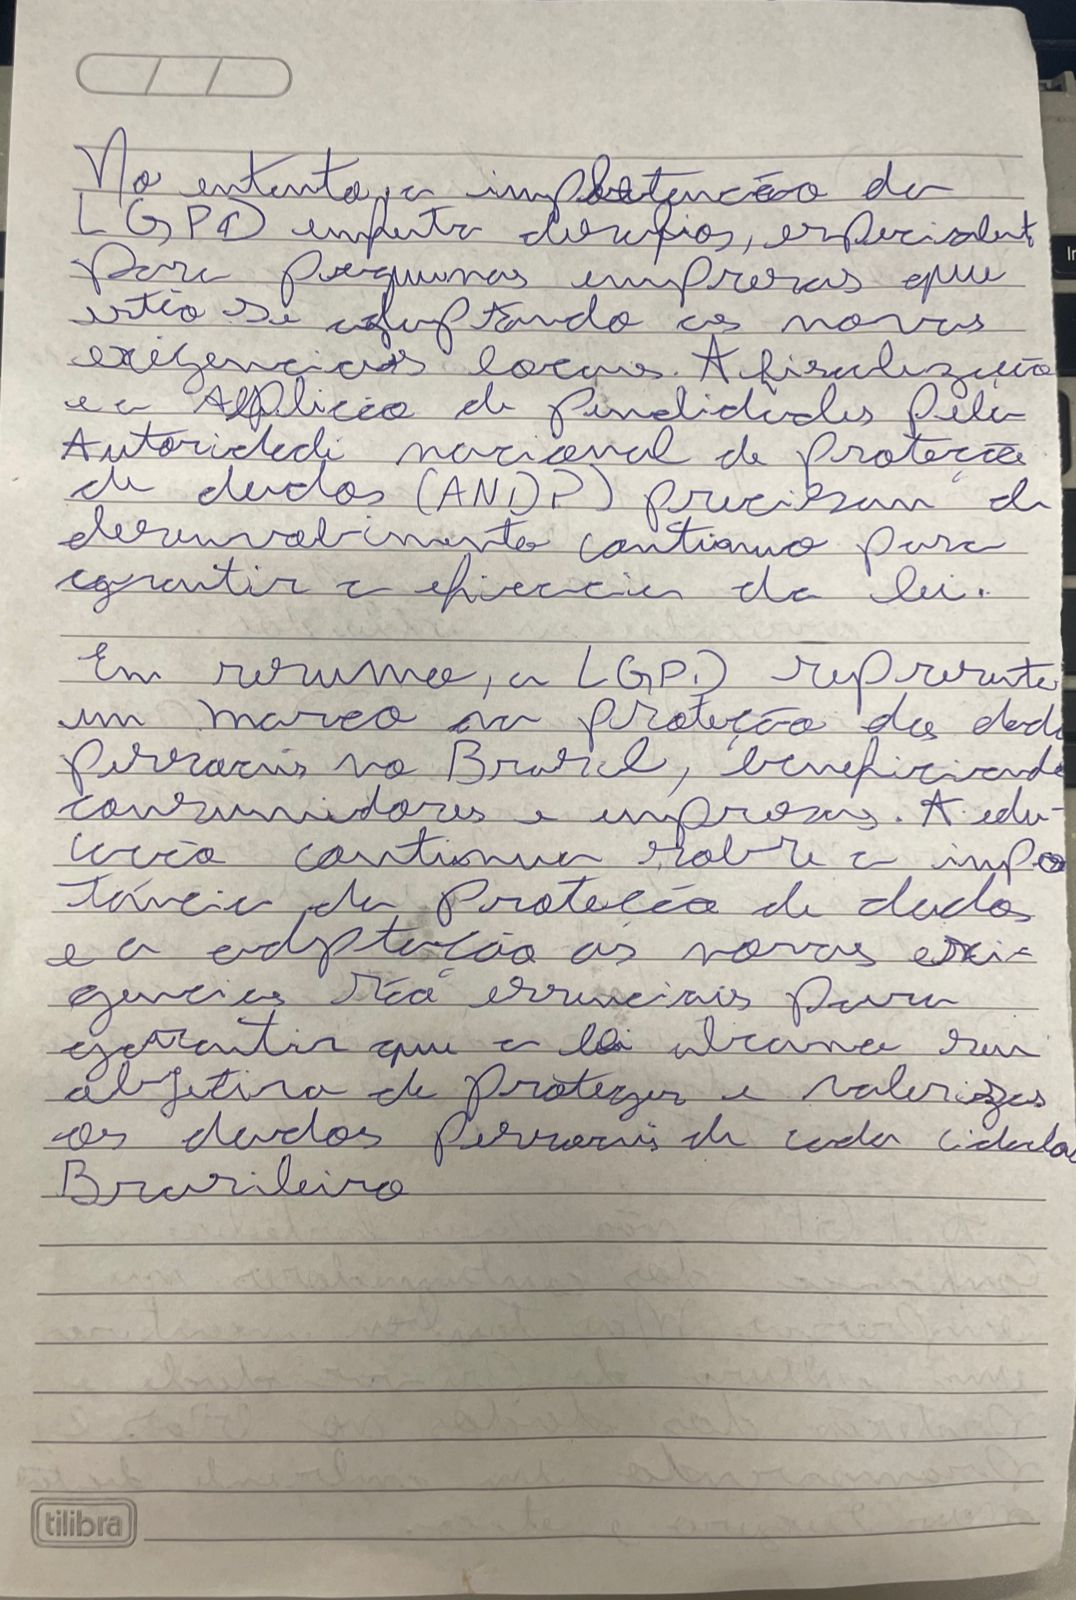 No entento, a implatencão da
LGPD enfenta desafios, especialment
para pequenas empresas que
estão se adaptando as novas
exigencias locais. A fiscalização
e a Aplicão de penalidades pela
Autoridade nacional de proteção
de dados (ANDP) precisam de
desenvolvimento continuo para
garantir a eficacia da lei.
Em resumo, a LGPD represente
um marco na proteção dos dad
pessoais no Brasil, beneficiando
consumidores e empresas. A edu-
cacão continua sobre a impo
tância da proteção de dados
e a adptação as novas exi-
gencias são essenciais para
garantir que a lei alcance seu
objetivo de proteger e valorizar
os dados pessoais de cada cidadão
Brasileiro
tilibra